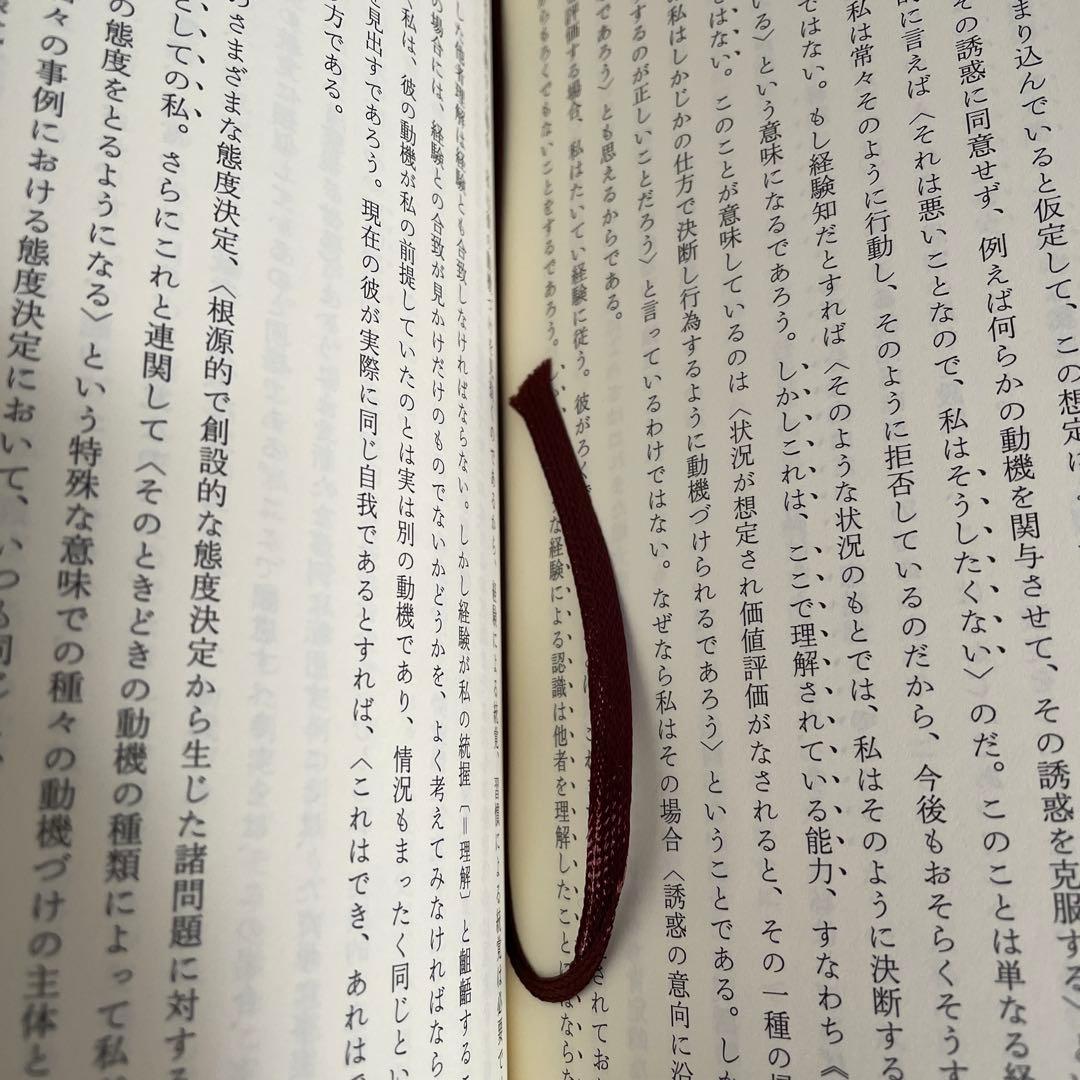 まり込んでいると仮定して、この想定に
その誘惑に同意せず、例えば何らかの動機を関与させて、その誘惑を克服する〉と
的に言えば〈それは悪いことなので、私はそうしたくない〉のだ。このことは単なる経
私は常々そのように行動し、そのように拒否しているのだから、今後もおそらくそうす
ではない。もし経験知だとすれば〈そのような状況のもとでは、私はそのように決断する
いる〉という意味になるであろう。しかしこれは、ここで理解されている能力、すなわち《
ではない。このことが意味しているのは〈状況が想定され価値評価がなされると、その一種の
私はしかじかの仕方で決断し行為するように動機づけられるであろう〉ということである。しか
するのが正しいことだろう〉と言っているわけではない。なぜなら私はその場合〈誘惑の意向に沿
であろう〉とも思えるからである。
評価する場合、私はたいてい経験に従う。彼がろく
からもろくでもないことをするであろう。
な経験による認識は他者を理解したことにはならな
した他者理解は経験とも合致しなければならない。しかし経験が私の統握〔＝理解〕と齟齬するこ
の場合には、経験との合致が見かけだけのものでないかどうかを、よく考えてみなければなら
私は、彼の動機が私の前提していたのとは実は別の動機であり、情況もまったく同じとい
を見出すであろう。現在の彼が実際に同じ自我であるとすれば、〈これはでき、あれは
方である。
さまざまな態度決定、〈根源的で創設的な態度決定から生じた諸問題に対する
としての私。さらにこれと連関して〈そのときどきの動機の種類によって私
の態度をとるようになる〉という特殊な意味での種々の動機づけの主体と
々の事例における態度決定において、いつも同じ